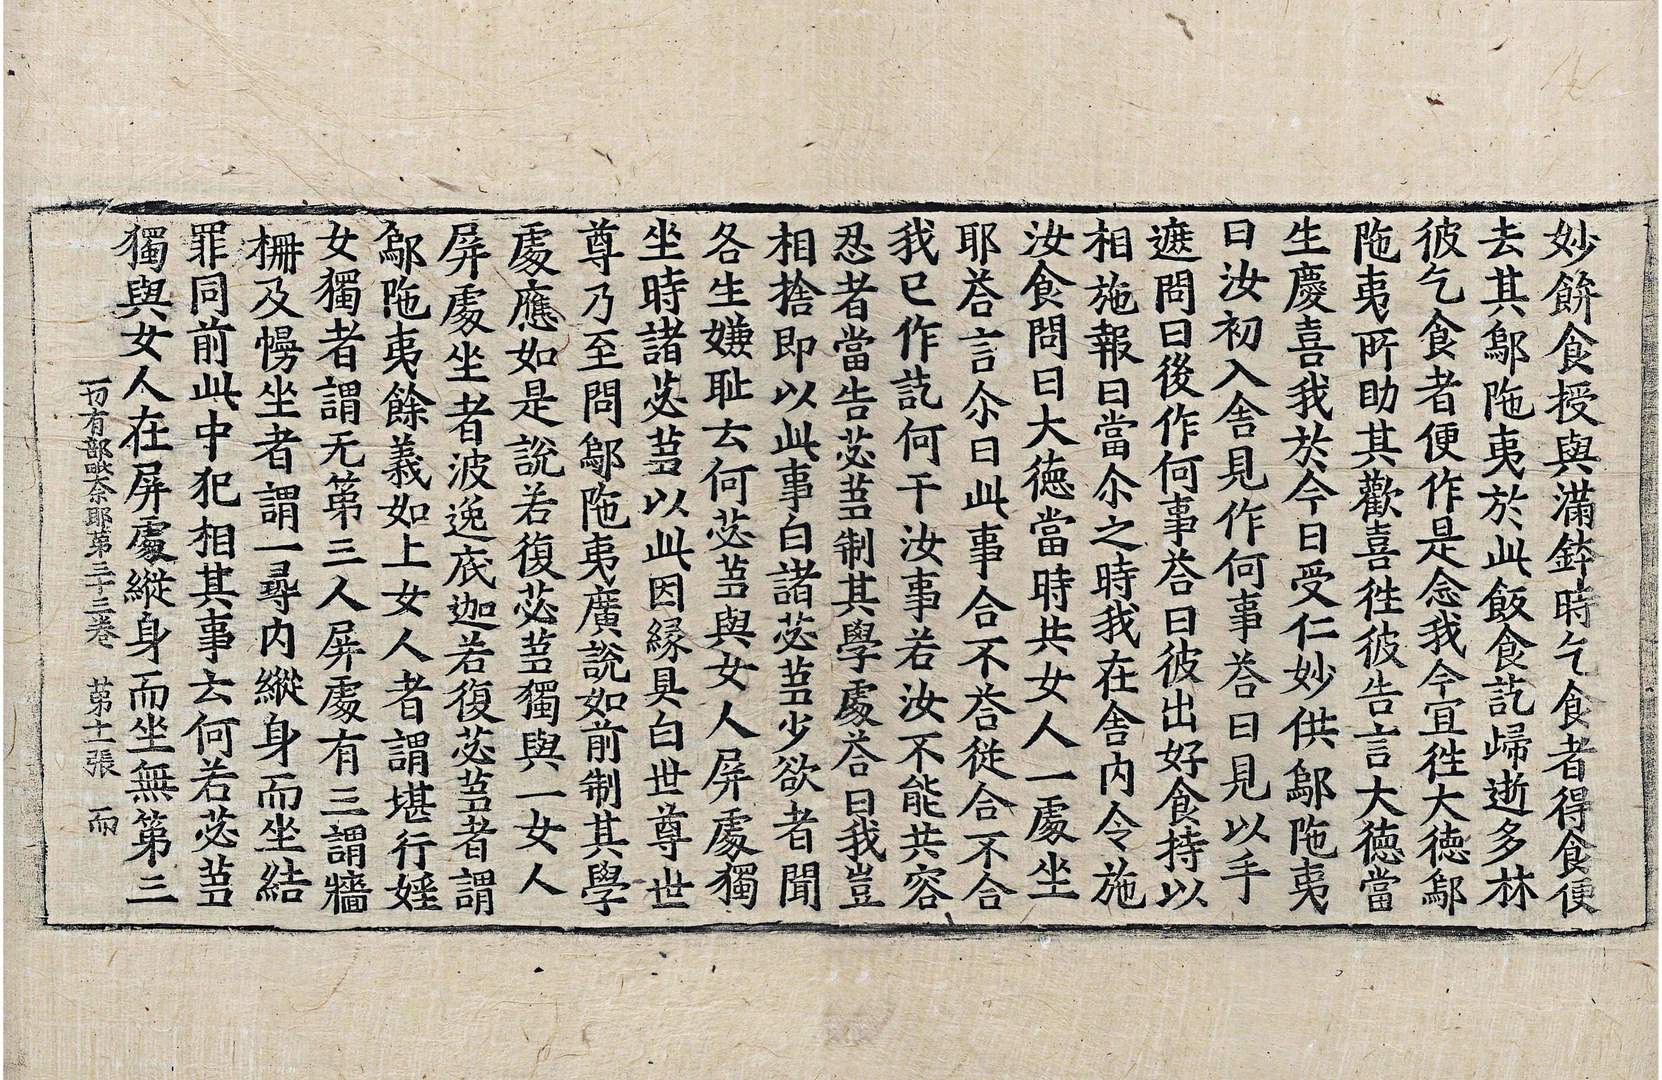 妙餅食授與滿鉢時乞食者得食便
去其鄔陁夷於此飯食訖歸逝多林
彼乞食者便作是念我今宜徃大德鄔
陁夷所助其歡喜徃彼告言大德當
生慶喜我於今日受仁妙供鄔陁夷
曰汝初入舍見作何事荅曰見以手
遮問曰後作何事荅曰彼出好食持以
相施報曰當尒之時我在舍内令施
汝食問曰大德當時共女人一處坐
耶荅言尒曰此事合不荅從合不合
我已作訖何干汝事若汝不能共容
忍者當告苾芻制其學處荅曰我豈
相捨即以此事白諸苾芻少欲者聞
各生嫌耻去何苾芻與女人屏處獨
坐時諸苾芻以此因縁具白世尊世
尊乃至問鄔陁夷廣說如前制其學
處應如是說若復苾芻獨與一女人
屏處坐者波逸底迦若復苾芻者謂
鄔陁夷餘義如上女人者謂堪行婬
女獨者謂无第三人屏處有三謂牆
柵及幔坐者謂一尋内縱身而坐結
罪同前此中犯相其事去何若苾芻
獨與女人在屏處縱身而坐無第三
一切有部毗奈耶第三十三卷 第十一張 而